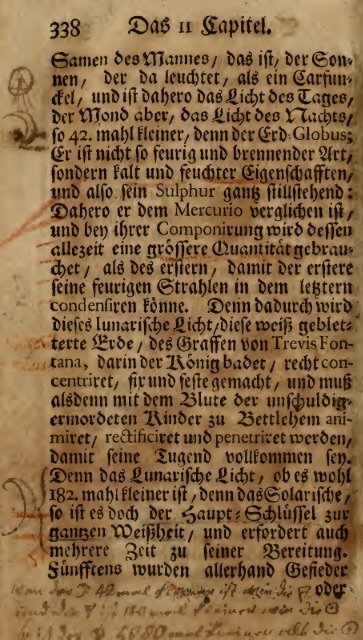 338 Das 11 Capitel.
Samen des Mannes/ das ist/ der Son-
nen/ der da leuchtet/ als ein Carfun-
ckel/ und ist dahero das Licht des Tages/
der Mond aber/ das Licht des Nachts/
so 42. mahl kleiner/ denn der Erd-Globus:
Er ist nicht so feurig und brennender Art/
sondern kalt und feuchter Eigenschafften/
und also sein Sulphur gantz stillstehend:
Dahero er dem Mercurio verglichen ist/
und bey ihrer Componirung wird dessen
allezeit eine grössere Quantität gebrau-
chet/ als des erstern/ damit der erstere
seine feurigen Strahlen in dem letztern
condensiren könne. Denn dadurch wird
dieses lunarische Licht/diese weiß geblet-
terte Erde/ des Graffen von Trevis Fon-
tana, darin der König badet/ recht con-
centriret/ fix und feste gemacht/ und muß
alsdenn mit dem Blute der unschuldig-
ermordeten Kinder zu Bettlehem ani-
miret/ rectificiret und penetriret werden/
damit seine Tugend vollkommen sey.
Denn das Lunarische Licht/ ob es wohl
182. mahl kleiner ist/ denn das Solarische/
so ist es doch der Haupt-Schlüssel zur
gantzen Weißheit/ und erfordert auch
mehrere Zeit zu seiner Bereitung.
Fünfftens wurden allerhand Gefieder
oder-